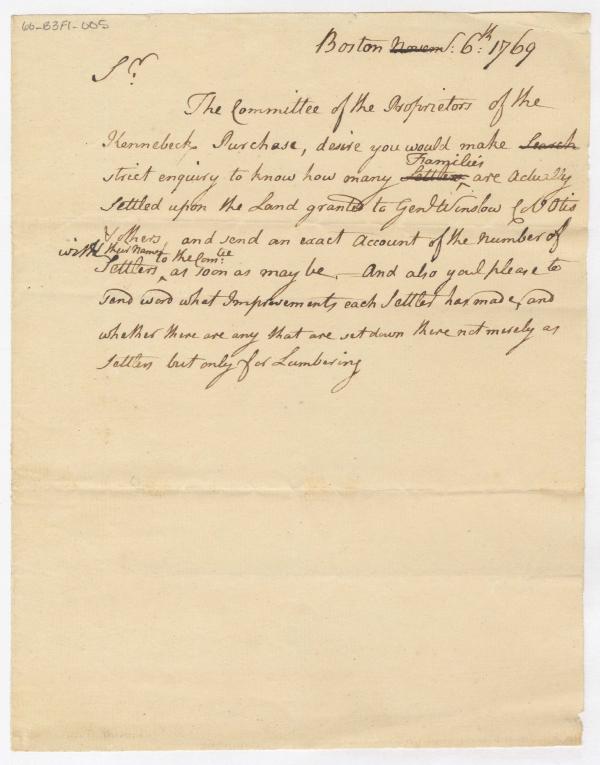 66-B3F1-005
Boston Novemr: 6th: 1769
Sr.
The Committee of the Proprietors of the
Kennebeck Purchase, desire you would make Search
strict enquiry to know how many Settlers Families are Actually
Settled upon the Land granted to Genl Winslow Col Otis
& others, and send an exact Account of the Number of
Settlers with their Names to the Comtee as soon as may be. And also youl please to
send word what Improvements each Settler has made, and
whether there are any that are set down there not merely as
Settlers but only for Lumbering